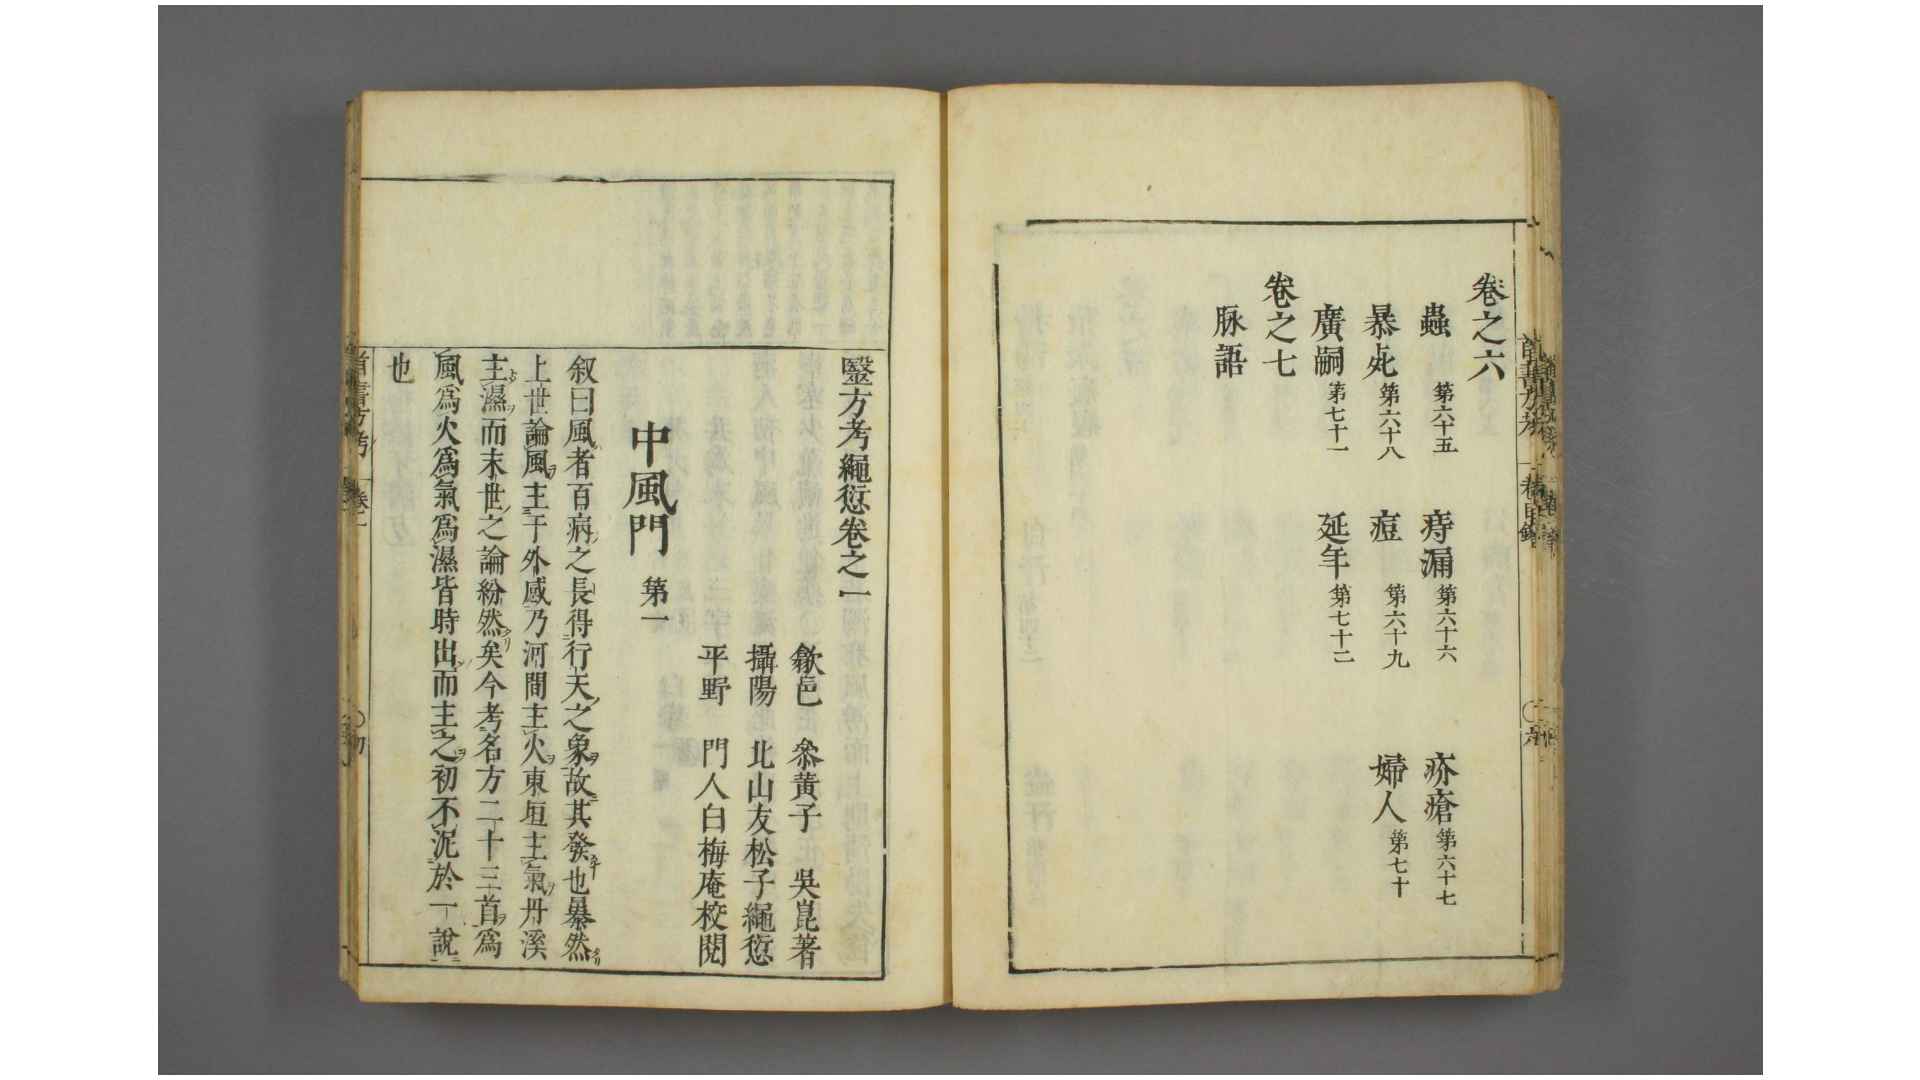 卷之六
蟲 第六十五 痔漏 第六十六 疥瘡 第六十七
暴死 第六十八 痘 第六十九 婦人 第七十
廣嗣 第七十一 延年 第七十二
卷之七
脉語
醫方考繩愆卷之一
歙邑 叅黃子 吳崑著
攝陽 北山友松子繩愆
平野 門人白梅庵校閱
中風門 第一
叙曰風者百病之長得行天之象故其發也暴然
上世論風主于外感乃河間主火東垣主氣丹溪
主濕而末世之論紛然矣今考名方二十三首爲
風爲火爲氣爲濕皆時出而主之初不泥於一說
也